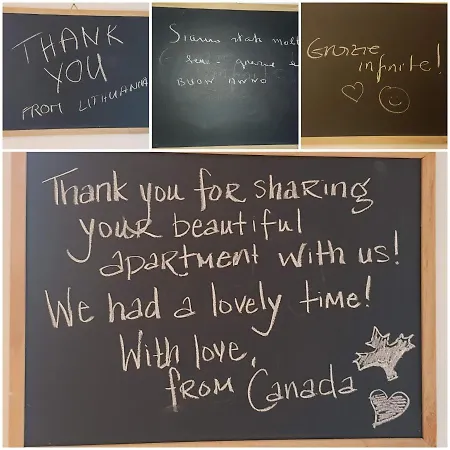 THANK
YOU
FROM LITHUANIA
Siamo stati molt
bene - grazie e
BUON ANNO
Grazie
infinite!
Thank you for sharing
your beautiful
apartment with us!
We had a lovely time!
With love,
from Canada